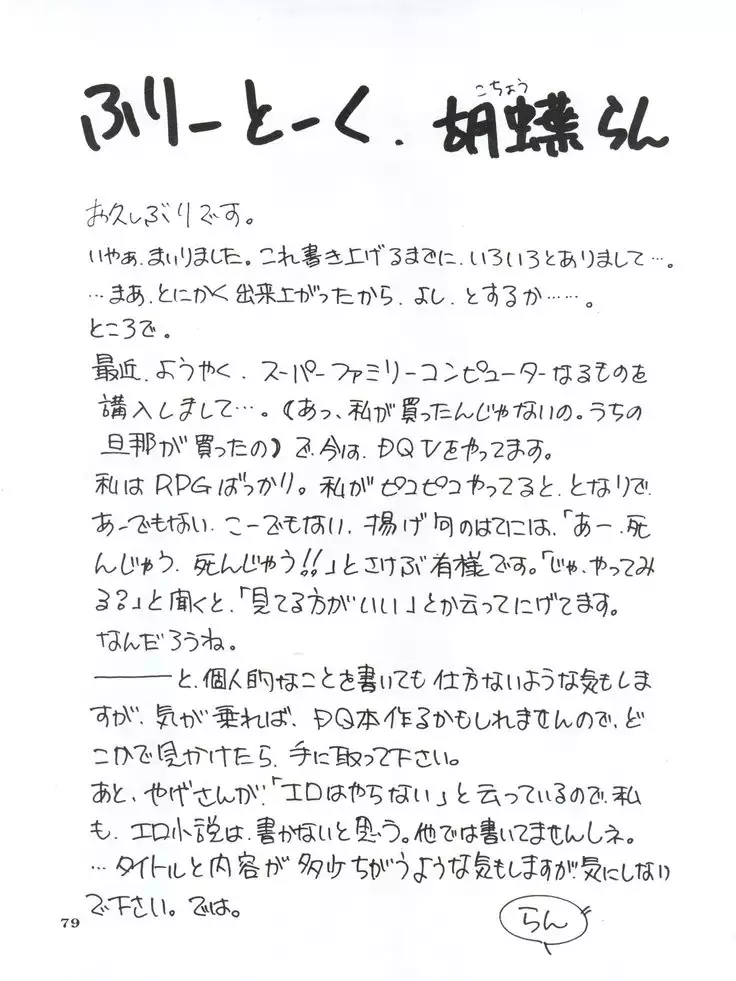 ふりーとーく.胡蝶らん
こちょう
お久しぶりです。
いやぁ、まいりました。これ書き上げるまでに、いろいろとありまして…。
…まあ、とにかく出来上がったから、よし、とするか……。
ところで。
最近、ようやく、スーパーファミリーコンピューターなるものを
講入しまして…。(あっ、私が買ったんじゃないの。うちの
旦那が買ったの)で、今は、DQVをやってます。
私はRPGばっかり。私がピコピコやってると、となりで、
あーでもない、こーでもない、揚げ句のはてには、「あー、死
んじゃう、死んじゃう!!」とさけぶ有様です。「じゃ、やってみ
る?」と聞くと、「見てる方がいい」とか云ってにげてます。
なんだろうね。
――と、個人的なことを書いても仕方ないような気もしま
すが、気が乗れば、DQ本作るかもしれませんので、ど
こかで見かけたら、手に取って下さい。
あと、やげさんが、「エロはやらない」と云っているので、私
も、エロ小説は、書かないと思う。他では書いてませんしネ。
…タイトルと内容が多少ちがうような気もしますが、気にしない
で下さい。では。
らん
79